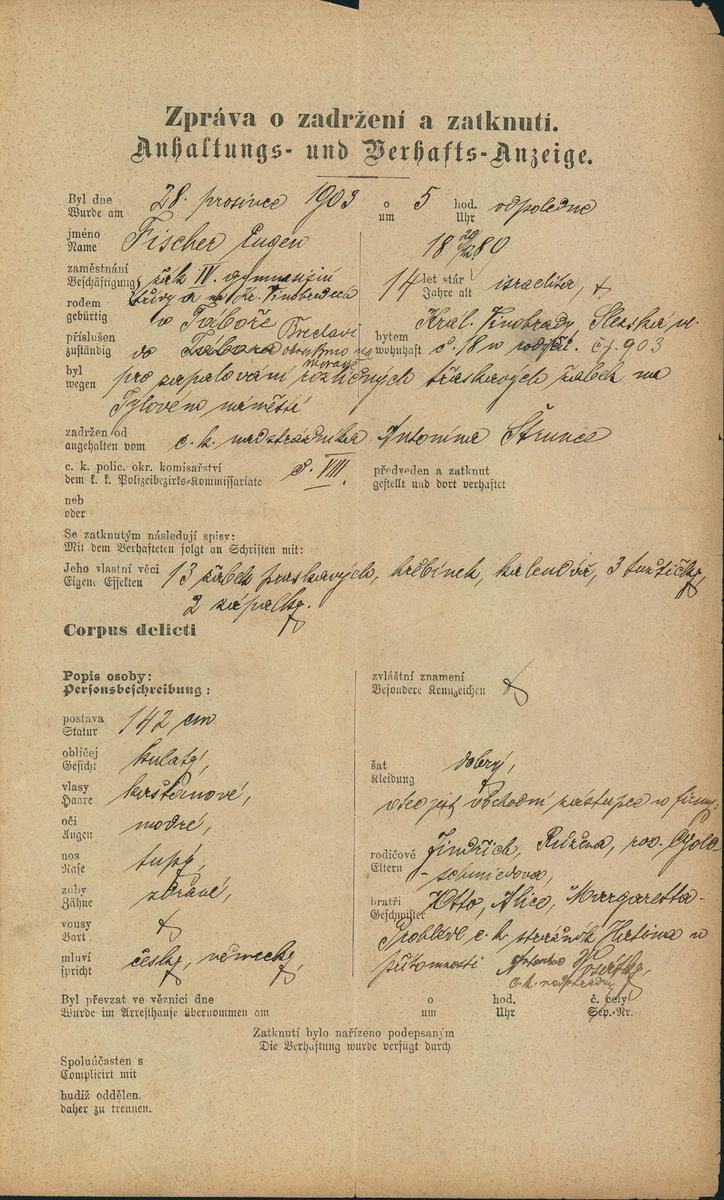 Zpráva o zadržení a zatknutí.
Anhaltungs- und Verhafts-Anzeige.
Byl dne 28. prosince 1903 o 5 hod. odpoledne
Wurde am um Uhr
jméno Fischer Eugen 18 89
Name
zaměstnání žák IV. gymnasijní
Beschäftigung třídy na Kr. Vinohradech 14 let stár israelita,
Jahre alt
rodem v Táboře
gebürtig Král. Vinohrady, Slezská ul.
příslušen do Tábora Břeclavi okr. na Moravě
zuständig
bytem č. 18 u rodičů. čp. 903
wohnhaft
byl pro zapalování různých třaskavých žabek na
wegen
Tylovém náměstí
zadržen od c. k. nadstrážníka Antonína Štrunce
angehalten vom
c. k. polic. okr. komisařství č. VIII. předveden a zatknut
dem k. k. Polizeibezirks-Kommissariate gestellt und dort verhaftet
neb
oder
Se zatknutým následují spisy:
Mit dem Verhafteten folgt an Schriften mit:
Jeho vlastní věci 13 žabek praskavých, hřebínek, kalendář, 3 tužky,
Eigene Effekten
2 zápalky.
Corpus delicti
Popis osoby: zvláštní znamení
Personsbeschreibung: Besondere Kennzeichen
postava 142 cm
Statur
obličej kulatý,
Gesicht
šat dobrý,
Kleidung
vlasy kaštanové,
Haare
otec jest obchodní zástupce firmy
oči modré,
Augen
rodičové Jindřich, Růžena, roz. Gold-
Eltern
nos tupý,
Nase
-schmiedová,
zuby zdravé,
Zähne
bratři Otto, Alice, Margaretta
Geschwister
vousy
Bart
Prohlédl c. k. strážník v
mluví česky, německy,
spricht
přítomnosti
c. k. nadstrážník
Byl převzat ve věznici dne o hod. č. cely
Wurde im Arresthause übernommen am um Uhr Sep.-Nr.
Zatknutí bylo nařízeno podepsaným
Die Verhaftung wurde verfügt durch
Spoluúčasten s
Complicirt mit
budiž oddělen.
daher zu trennen.